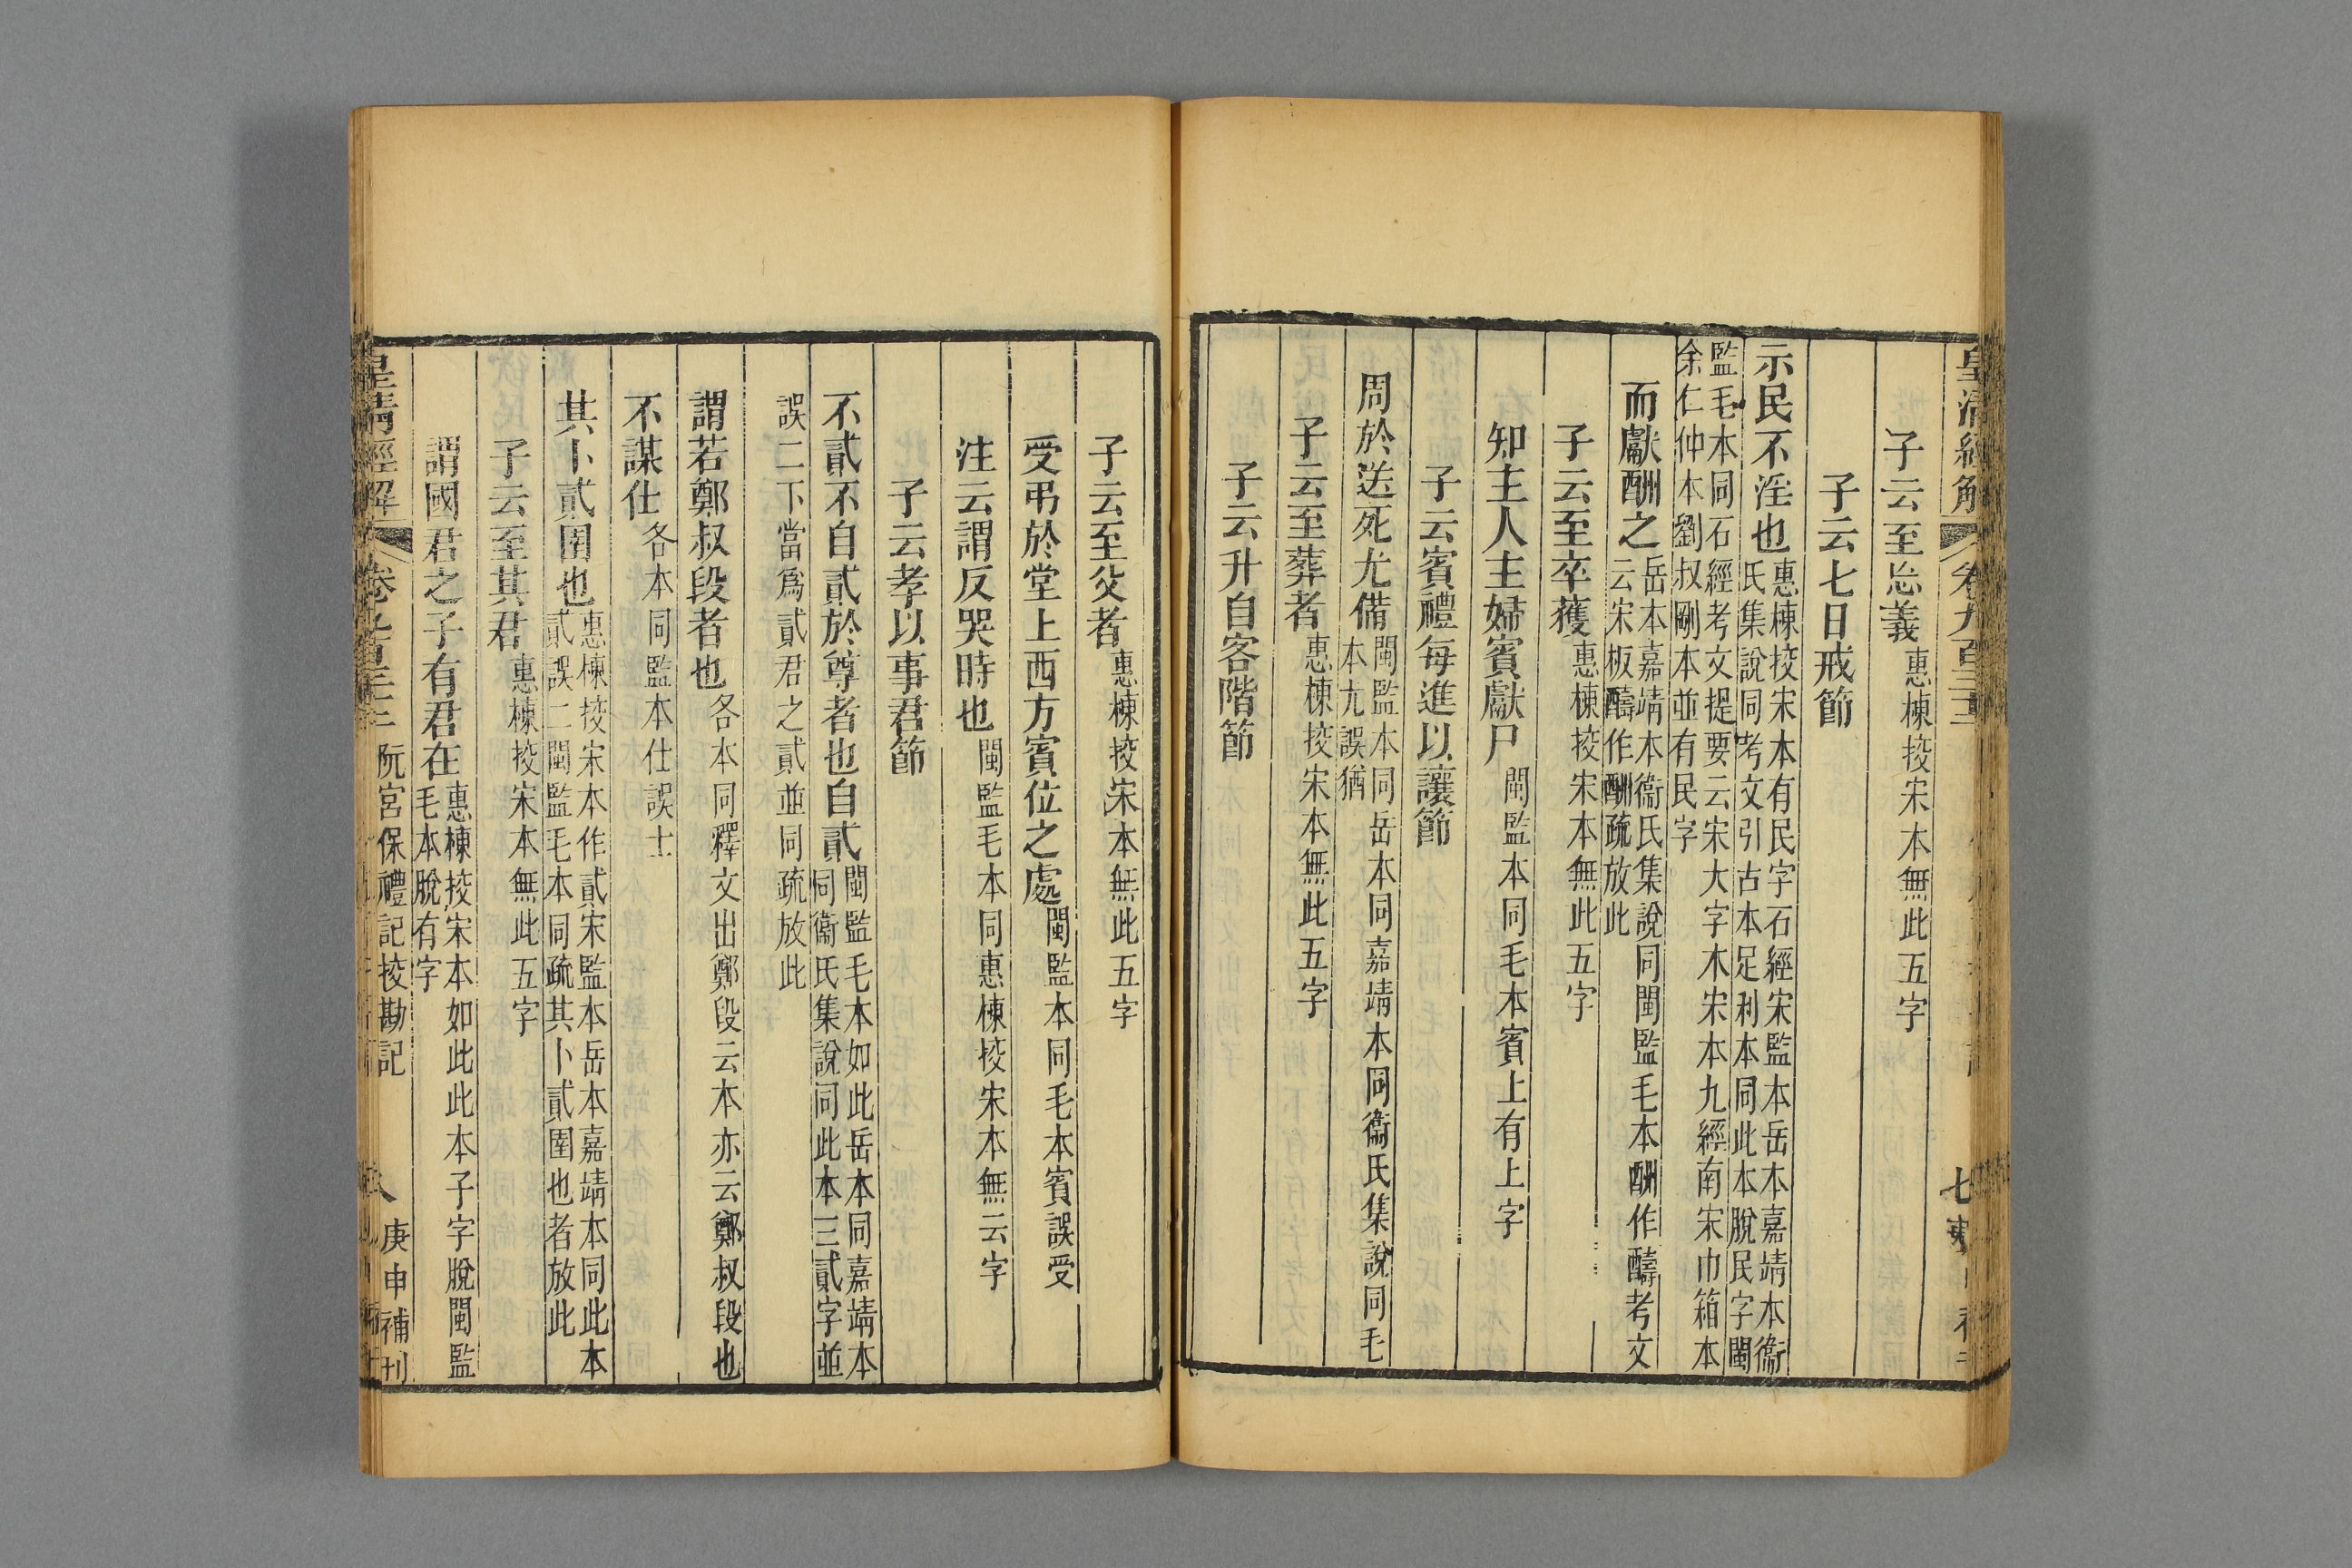 皇清經解 卷九百三十三
七
子云至忘義惠棟挍宋本無此五字
子云七日戒節
示民不淫也惠棟挍宋本有民字石經宋監本岳本嘉靖本衞
氏集說同考文引古本足利本同此本脫民字閩
監毛本同石經考文提要云宋大字本宋本九經南宋巾箱本
余仁仲本劉叔剛本並有民字
而獻酬之岳本嘉靖本衞氏集說同閩監毛本酬作醻考文
云宋板醻作酬疏放此
子云至卒獲惠棟挍宋本無此五字
知主人主婦賓獻尸閩監本同毛本賓上有上字
子云賓禮每進以讓節
周於送死尤備閩監本同岳本同嘉靖本同衞氏集說同毛
本尤誤猶
子云至葬者惠棟挍宋本無此五字
子云升自客階節
子云至父者惠棟挍宋本無此五字
受弔於堂上西方賓位之處閩監本同毛本賓誤受
注云謂反哭時也閩監毛本同惠棟挍宋本無云字
子云孝以事君節
不貳不自貳於尊者也自貳閩監毛本如此岳本同嘉靖本
同衞氏集說同此本三貳字並
誤二下當爲貳君之貳並同疏放此
謂若鄭叔段者也各本同釋文出鄭段云本亦云鄭叔段也
不謀仕各本同監本仕誤士
其卜貳圉也惠棟挍宋本作貳宋監本岳本嘉靖本同此本
貳誤二閩監毛本同疏其卜貳圉也者放此
子云至其君惠棟挍宋本無此五字
謂國君之子有君在惠棟挍宋本如此此本子字脫閩監
毛本脫有字
皇清經解 卷九百三十三 阮宮保禮記挍勘記 八 庚申補刊